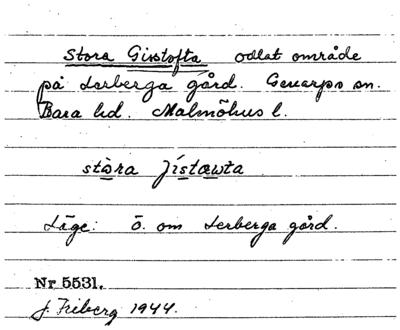 Stora Gisstofta odlat område
på Lerberga gård. Genarps sn.
Bara hd. Malmöhus l.
stòra jístawta
Läge: Ö. om Lerberga gård.
Nr 5531.
J. Friberg 1944.